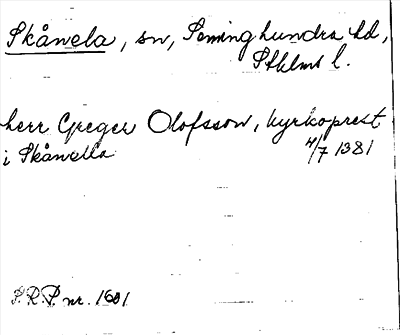 Skånela, sn, Seminghundra hd,
Sthlms l.
herr Greger Olofsson, kyrkoprest
i Skånella 4/7 1381
S.R.P. nr. 1681